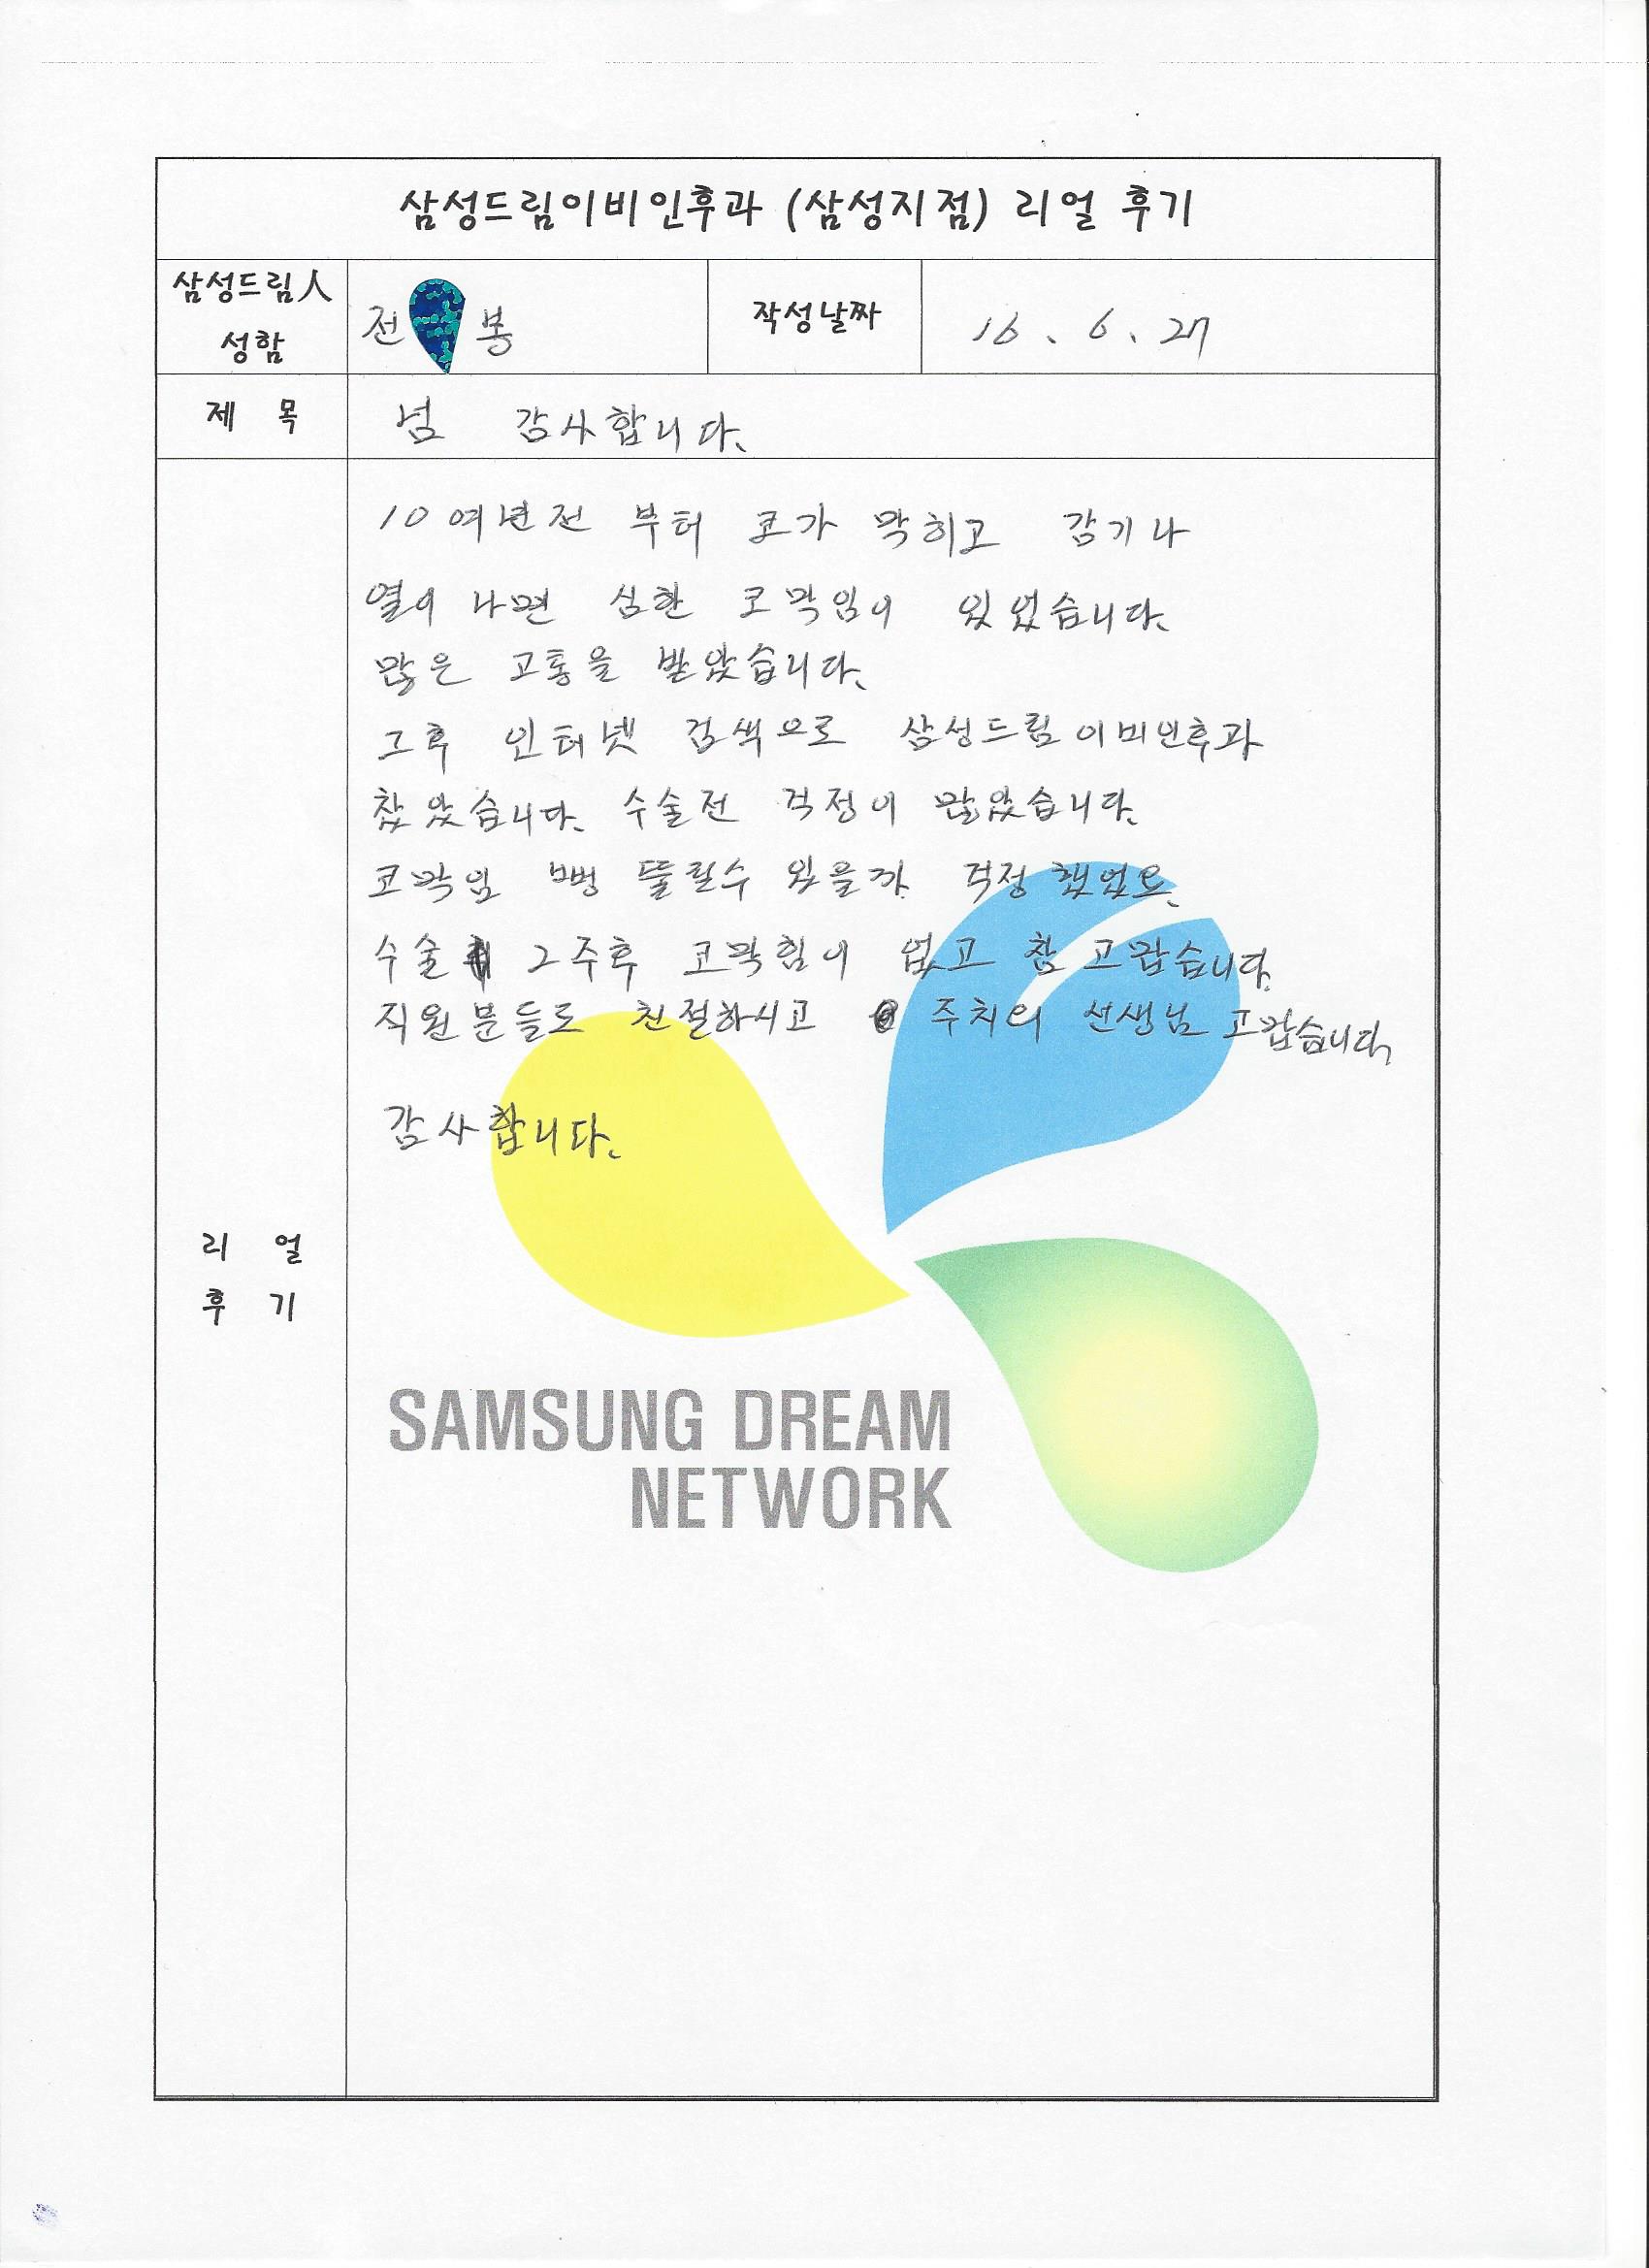 삼성드림이비인후과 (삼성지점) 리얼 후기
삼성드림人
성함
전 봉
작성날짜
16. 6. 27
제 목
넘 감사합니다.
10여년전 부터 코가 막히고 감기나
열이 나면 심한 코막임이 있었습니다.
많은 고통을 받았습니다.
그후 인터넷 검색으로 삼성드림이비인후과
찾았습니다. 수술전 걱정이 많았습니다.
코막임 뻥 뚤릴수 있을까 걱정했었요.
수술 2주후 코막힘이 없고 참 고맙습니다.
직원분들도 친절하시고 주치의 선생님 고맙습니다.
감사합니다.
리 얼
후 기
SAMSUNG DREAM
NETWORK